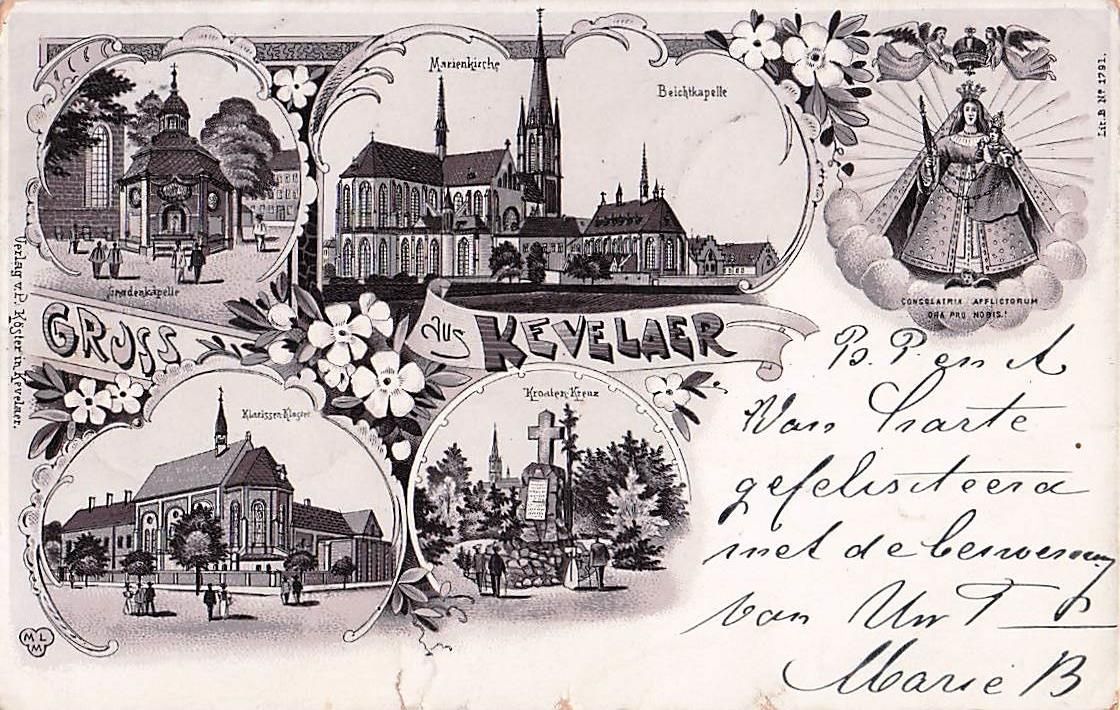 Marienkirche
Beichtkapelle
Lit. B. Nº 1791.
Gnadenkapelle
CONSOLATRIX AFFLICTORUM
ORA PRO NOBIS.!
GRUSS
AUS KEVELAER
Verlag v. P. Köster in Kevelaer.
Klarissen-Kloster
Kroaten-Kreuz
B. P. en A
Van harte
gefelisiteerd
met de
van Uw T
Marie B
MLM